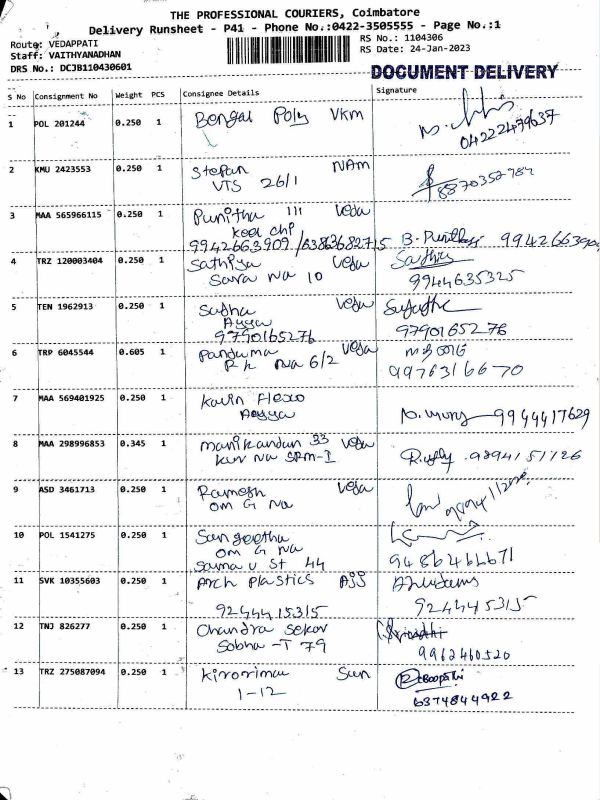 THE PROFESSIONAL COURIERS, Coimbatore
Delivery Runsheet - P41 - Phone No.:0422-3505555 - Page No.:1
Route: VEDAPPATI RS No.: 1104306
Staff: VAITHYANADHAN RS Date: 24-Jan-2023
DRS No.: DCJB110430601
DOCUMENT DELIVERY
S No Consignment No Weight PCS Consignee Details Signature
1 POL 201244 0.250 1 Bengal Poly VKm
04222479637
2 KMU 2423553 0.250 1 Stepan NAm
VTS 26/1 8870352784
3 MAA 565966115 0.250 1 Punitha 111 Veda
keel chp
9942663909 /63863682715 B. Punitha
4 TRZ 120003404 0.250 1 Sathiya Veda Sathiya
Sara Na 10 9944635325
5 TEN 1962913 0.250 1 Sudha Veda
Ayya
9790165276 9790165276
6 TRP 6045544 0.605 1 Veda
Na 6/2 9976316670
7 MAA 569401925 0.250 1 Kavin Flexo
Ayya 9944417629
8 MAA 298996853 0.345 1 manikandan 33 Veda
Na SRM-I 9894151126
9 ASD 3461713 0.250 1 Ramesh Veda
OM G Na
10 POL 1541275 0.250 1 Sangeetha
OM G Na
St 44 9486466671
11 SVK 10355603 0.250 1 Arch Plastics AJJ
9244415315 9244415315
12 TNJ 826277 0.250 1 Chandra Sekar
Sobha -T 79 9962460520
13 TRZ 275087094 0.250 1 Sun Boopathi
1-12 6374844922